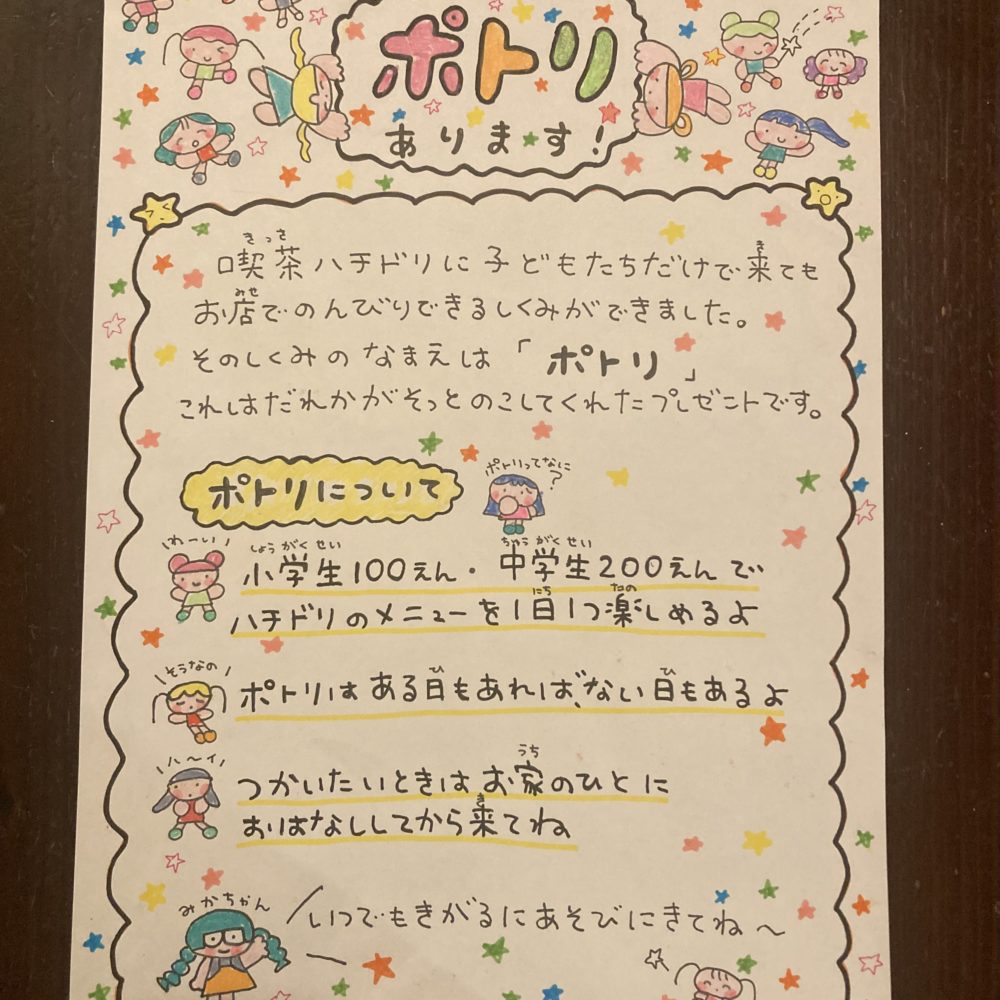 ポトリ
あります!
喫茶ハチドリに子どもたちだけで来ても
お店でのんびりできるしくみができました。
そのしくみのなまえは「ポトリ」
これはだれかがそっとのこしてくれたプレゼントです。
ポトリについて
ポトリってなに?
わーい
小学生100えん・中学生200えんで
ハチドリのメニューを1日1つ楽しめるよ
そうなの
ポトリはある日もあれば、ない日もあるよ
ハ〜イ
つかいたいときはお家のひとに
おはなししてから来てね
みかちゃん
いつでもきがるにあそびにきてね〜